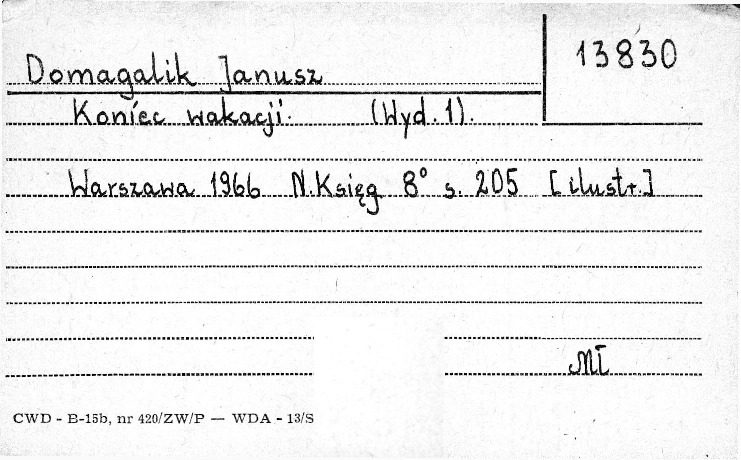 13830
Domagalik Janusz
Koniec wakacji. (Wyd. 1).
Warszawa 1966 N. Księg 8° s. 205 [ilustr.]
MŁ
CWD - B-15b, nr 420/ZW/P — WDA - 13/S